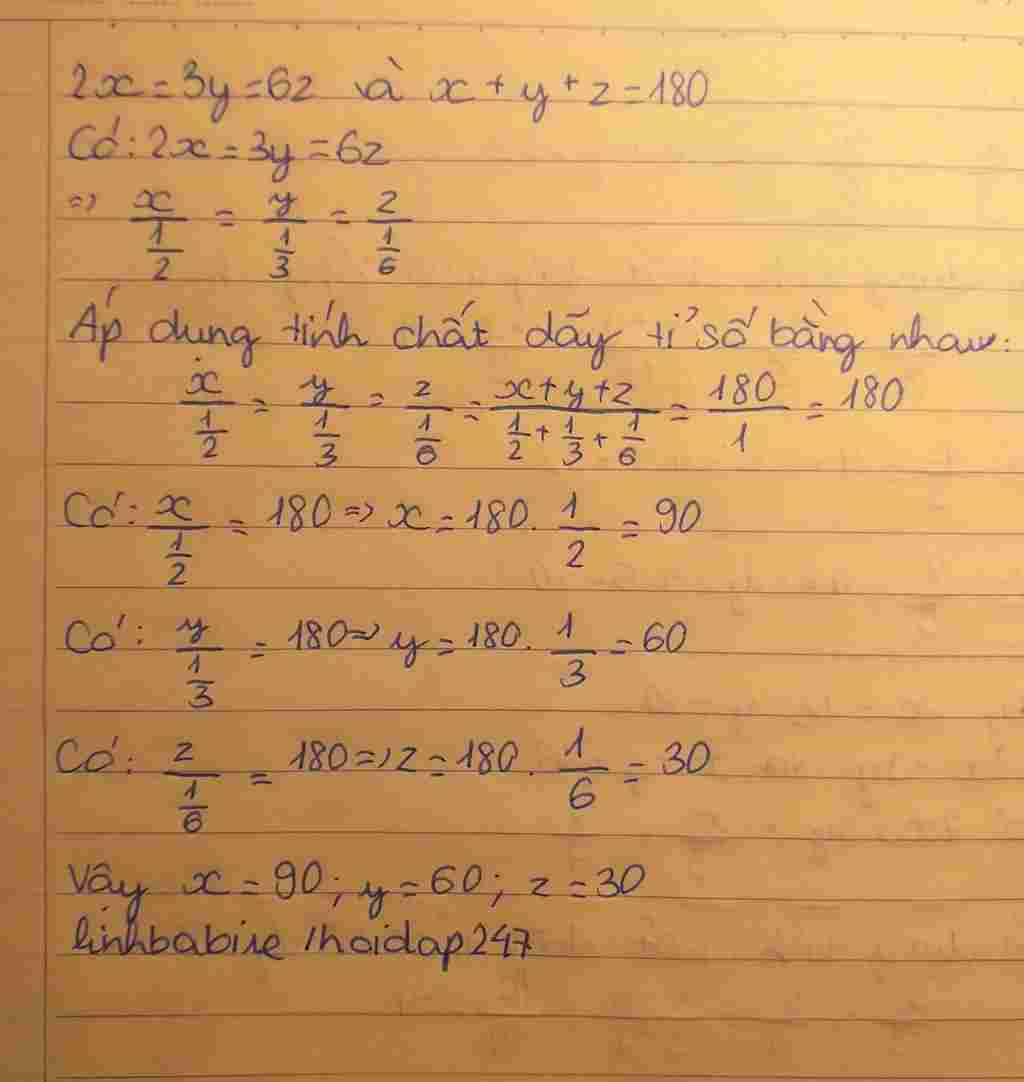 2x = 3y = 6z và x + y + z = 180
Có: 2x = 3y = 6z
=> x/(1/2) = y/(1/3) = z/(1/6)
Áp dụng tính chất dãy tỉ số bằng nhau:
x/(1/2) = y/(1/3) = z/(1/6) = (x+y+z)/(1/2 + 1/3 + 1/6) = 180/1 = 180
Có: x/(1/2) = 180 => x = 180 . 1/2 = 90
Có: y/(1/3) = 180 => y = 180 . 1/3 = 60
Có: z/(1/6) = 180 => z = 180 . 1/6 = 30
Vậy x = 90; y = 60; z = 30
/hoidap247